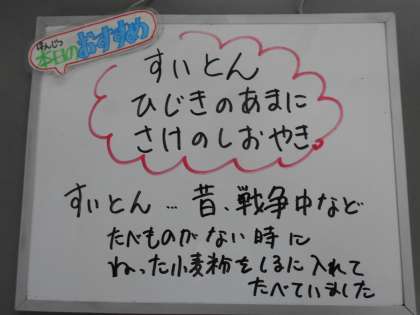 ほんじつ
本日のおすすめ
すいとん
ひじきのあまに
さけのしおやき
すいとん…昔、戦争中など
たべものがない時に
ねった小麦粉をしるに入れて
たべていました